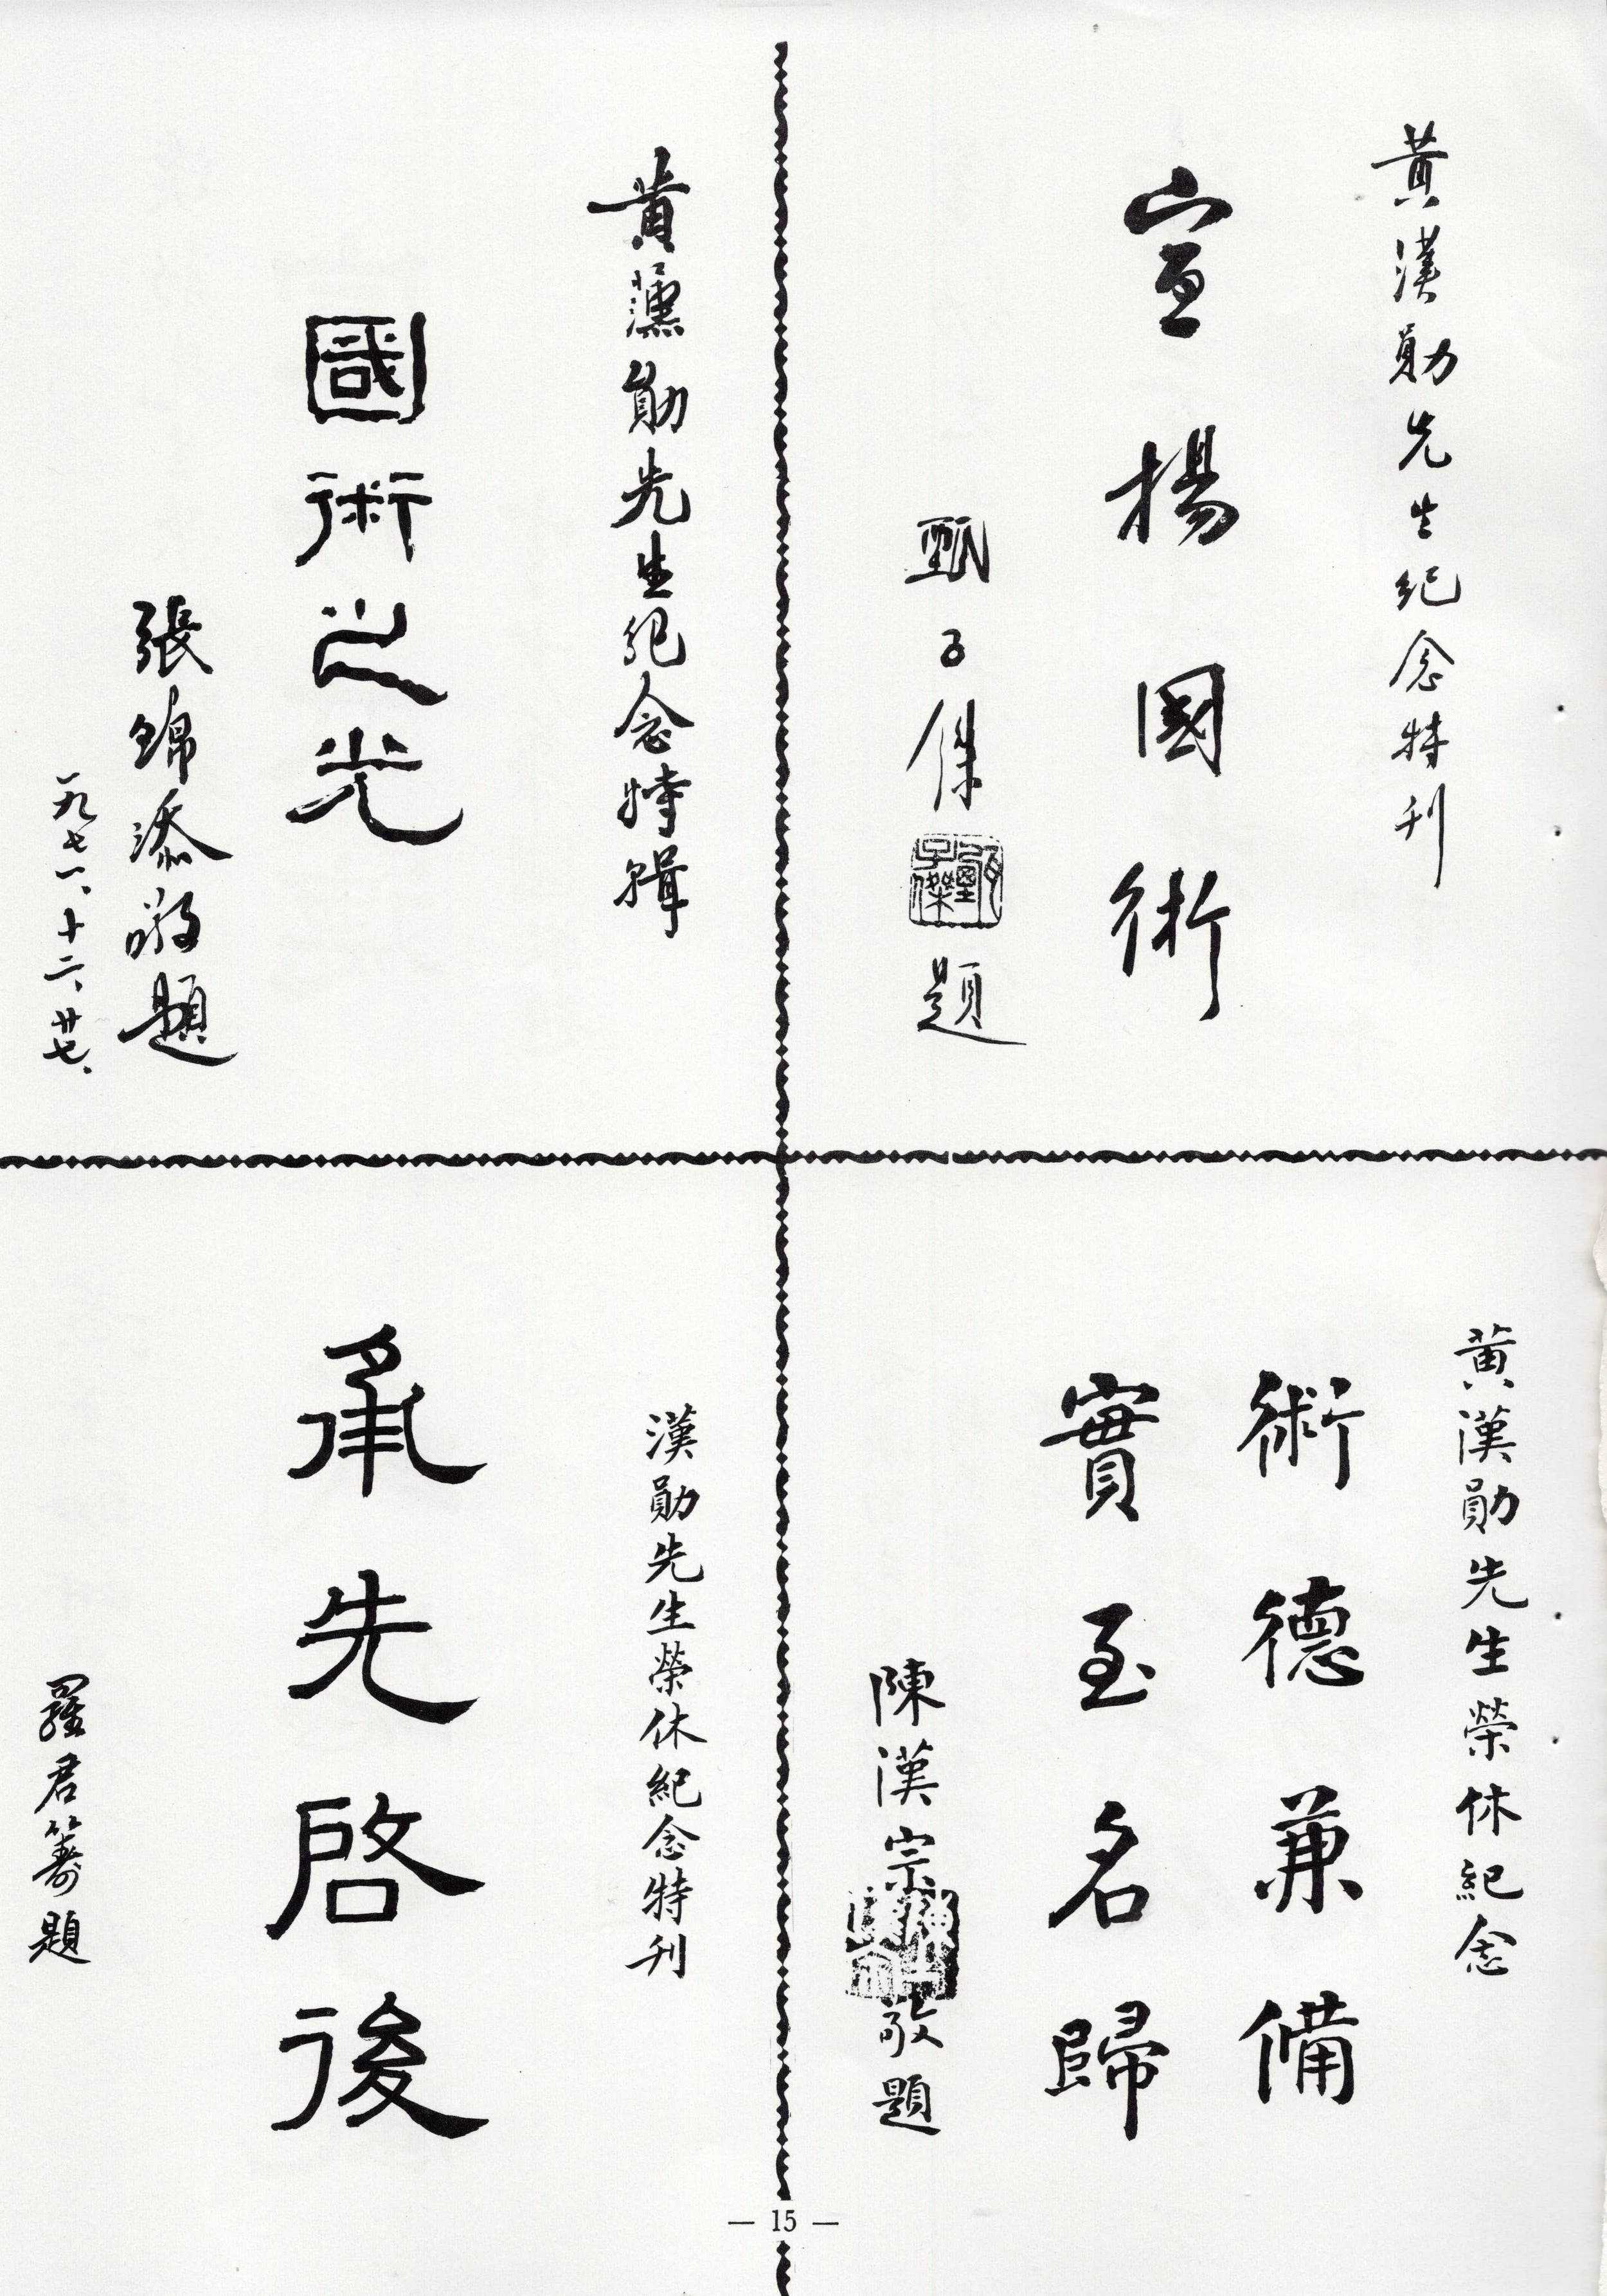 黃漢勛先生紀念特刊
宣揚國術
甄子傑題
黃漢勛先生紀念特輯
國術之光
張錦添敬題
一九七一、十二、廿七、
黃漢勛先生榮休紀念
術德兼備
實至名歸
陳漢宗敬題
漢勛先生榮休紀念特刊
承先啓後
羅君籌題
— 15 —